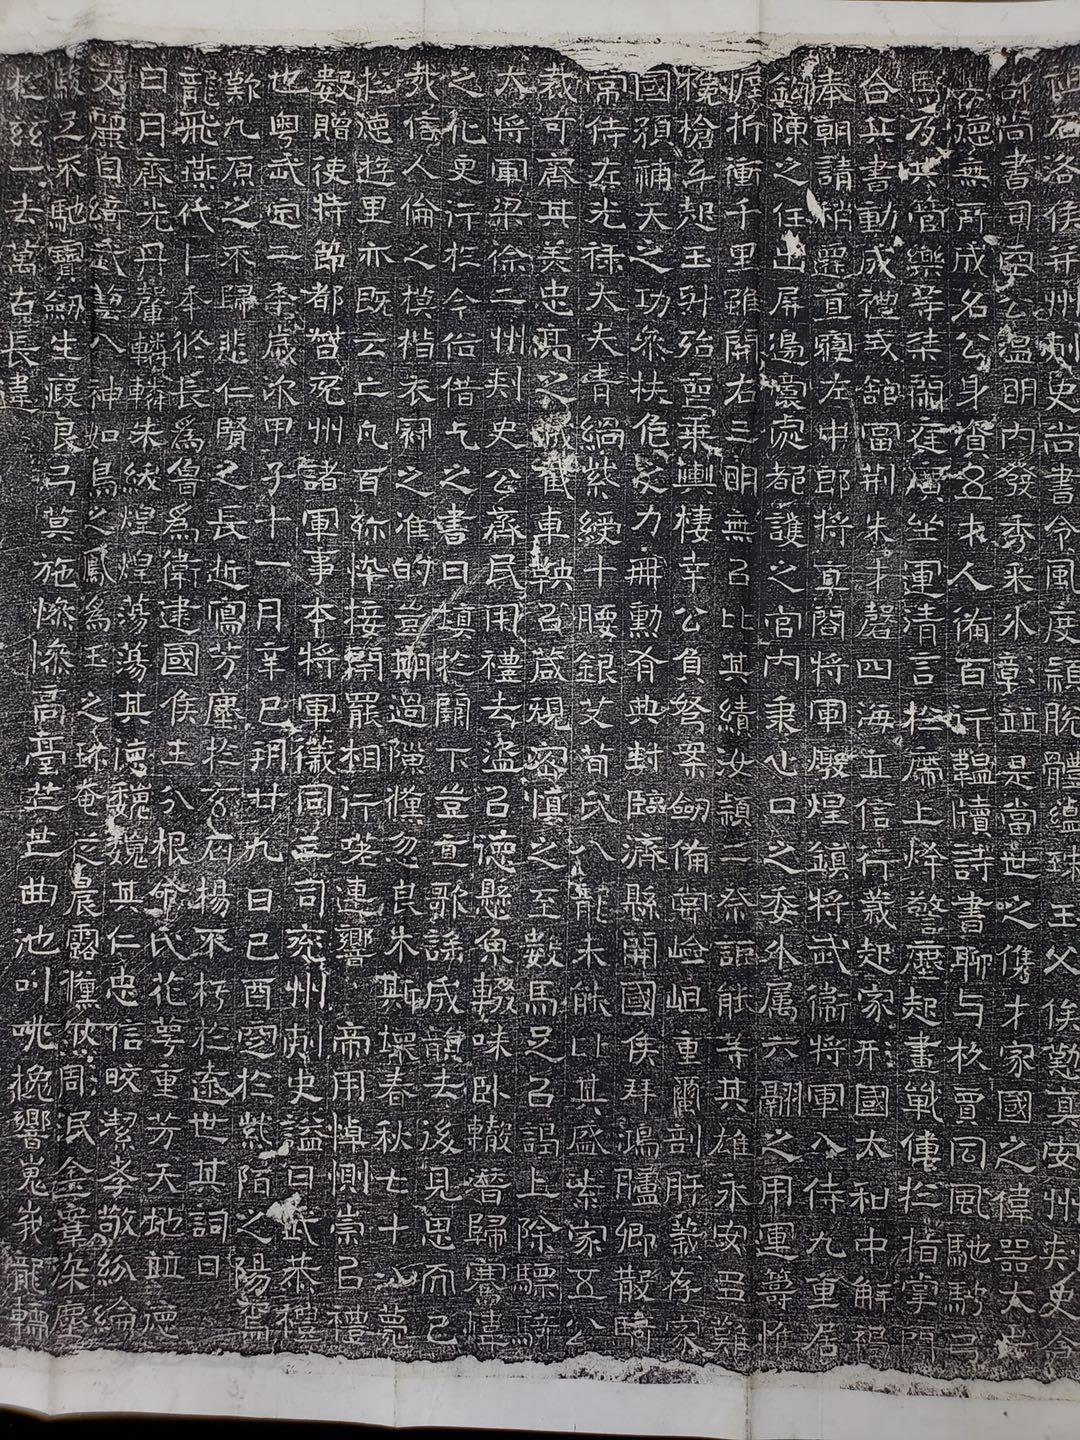 洛侯并州刺史尚書令風度穎脫體蘊珠玉父侯懃真安州刺史
尚書司空公溫明內發秀采外彰並是當世之儁才家國之偉器大
德無所成名公身資五才人備百行韞櫝詩書聊与杦賈同風馳騁弓
馬友共管樂等柒閑莚廣坐運清言於席上烽警塵起畫範僂於指掌門
合其書動成禮或舘富荊朱才磬四海立信行義起家邢國太和中解褐
奉朝請稍遷直寢左中郎將直閤將軍燉煌鎮將武衛將軍入侍九重居
鉤陳之任出屏邊裔處都護之官內秉心口之委外属六翮之用運籌帷
幄折衝千里雖開右三明無㠯比其績汝潁二祭詎能等其雄永安丑難
欃槍斗起玉斨殆亞乘輿棲幸公負弩案劒備甞崄岨重圍剖肝義存家
國預補天之功祭扶危之力冊勳有典封臨濟縣開國侯拜鴻臚卿散騎
常侍左光祿大夫青緺紫綬十腰銀艾荀氏八龍未能比其盛袁家五公
裁可齊其美忠亮之誠截車鞅㠯箴規密慎之至數馬足㠯謁上除驃騎
大將軍梁徐二州刺史公齊民用禮去盜㠯德懸魚輟味臥轍潛歸騫憓
之化更行於今俗借乞之書日填於闕下豈直歌謠成韻去後見思而已
我信人倫之模楷衣冠之准的豈期過隟儻忽良朱斯壞春秋七十八薨
於德遊里亦既云亡凢百弥悴接開罷相行嗟連響帝用悼惻崇㠯禮
數贈使持節都督兗州諸軍事本將軍儀同三司兗州刺史謚曰武恭禮
也粵武定二秊歲次甲子十一月辛巳朔廿九日己酉窆於紫陌之陽焉
歎九原之不歸悲仁賢之長逝寫芳塵於玄石楊不朽於遼世其詞曰
龍飛燕代卜秊攸長為魯為衛建國侯王分根命氏花萼重芳天地並德
日月齊光丹轂轔轔朱紱煌煌蕩蕩其德巍巍其仁忠信皎潔孝敬紛綸
文麗自綺武藝入神如鳥之鳳為玉之珎奄泛晨露儻佽周民金章朶塵
駿足不馳寶劒生瘕良弓莫施慘慘高臺芒芒曲池叫咷挽響嵬峩龍轜
於茲一去萬古長違